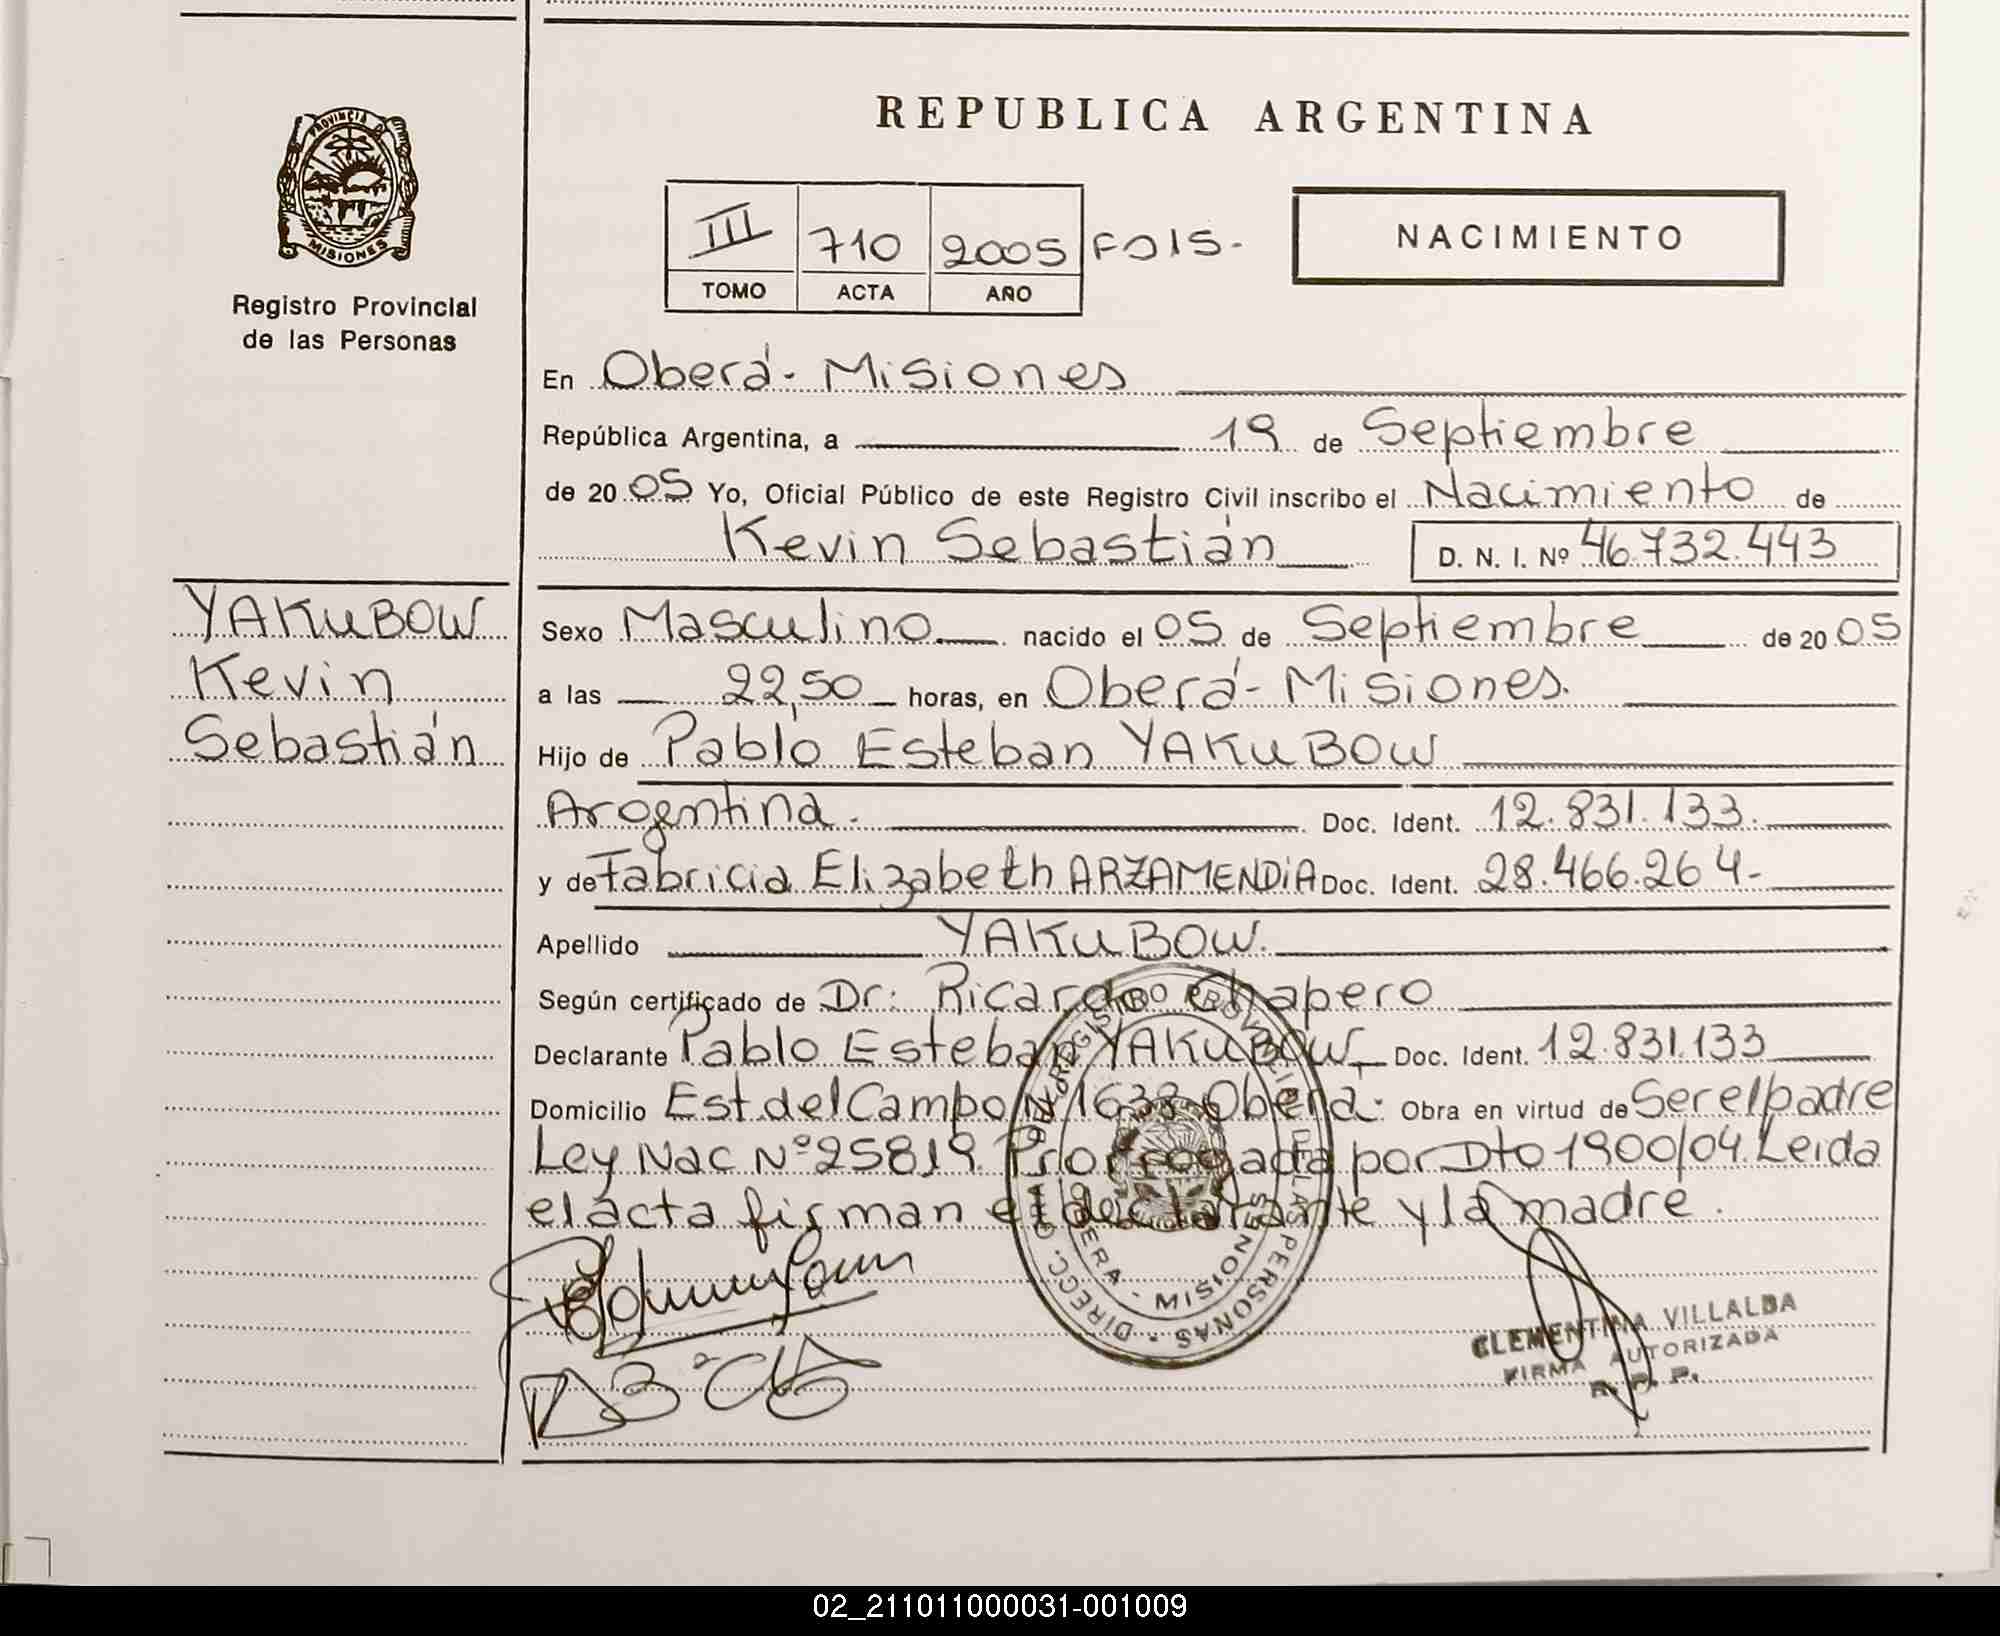 REPUBLICA ARGENTINA
PROVINCIA DE
MISIONES
Registro Provincial
de las Personas
III 710 2005 FO15.-
TOMO ACTA AÑO
NACIMIENTO
En Oberá- Misiones
República Argentina, a 19 de Septiembre
de 2005 Yo, Oficial Público de este Registro Civil inscribo el Nacimiento de
Kevin Sebastián D. N. I. Nº 46.732.443
YAKUBOW
Kevin
Sebastián
Sexo Masculino nacido el 05 de Septiembre de 2005
a las 22,50 horas, en Oberá- Misiones.
Hijo de Pablo Esteban YAKUBOW
Argentina. Doc. Ident. 12.831.133.
y de Fabricia Elizabeth ARZAMENDiA Doc. Ident. 28.466.264-
Apellido YAKUBOW.
Según certificado de Dr: Ricardo Chapero
Declarante Pablo Esteban YAKUBOW Doc. Ident. 12.831.133
Domicilio Est. del Campo Nº 1633 Oberá. Obra en virtud de Ser el padre
Ley Nac Nº 25819. Prorrogada por Dto 1900/04. Leida
el acta firman el declarante y la madre.
DIRECC. GRAL. REGISTRO PROVINCIAL DE LAS PERSONAS
OBERA - MISIONES
CLEMENTINA VILLALBA
FIRMA AUTORIZADA
R. P. P.
02_211011000031-001009